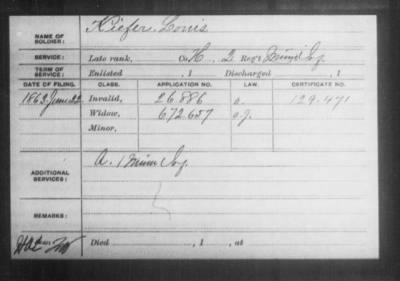 NAME OF SOLDIER: Kiefer, Louis
SERVICE: Late rank, Co. H, 2 Reg't Minn Inf.
TERM OF SERVICE: Enlisted , 1 Discharged , 1
DATE OF FILING. CLASS. APPLICATION NO. LAW. CERTIFICATE NO.
1863 June 22 Invalid, 26.886 129.471
Widow, 672.657
Minor,
ADDITIONAL SERVICES: A. 1 Minn Inf.
REMARKS:
Died , 1 , at